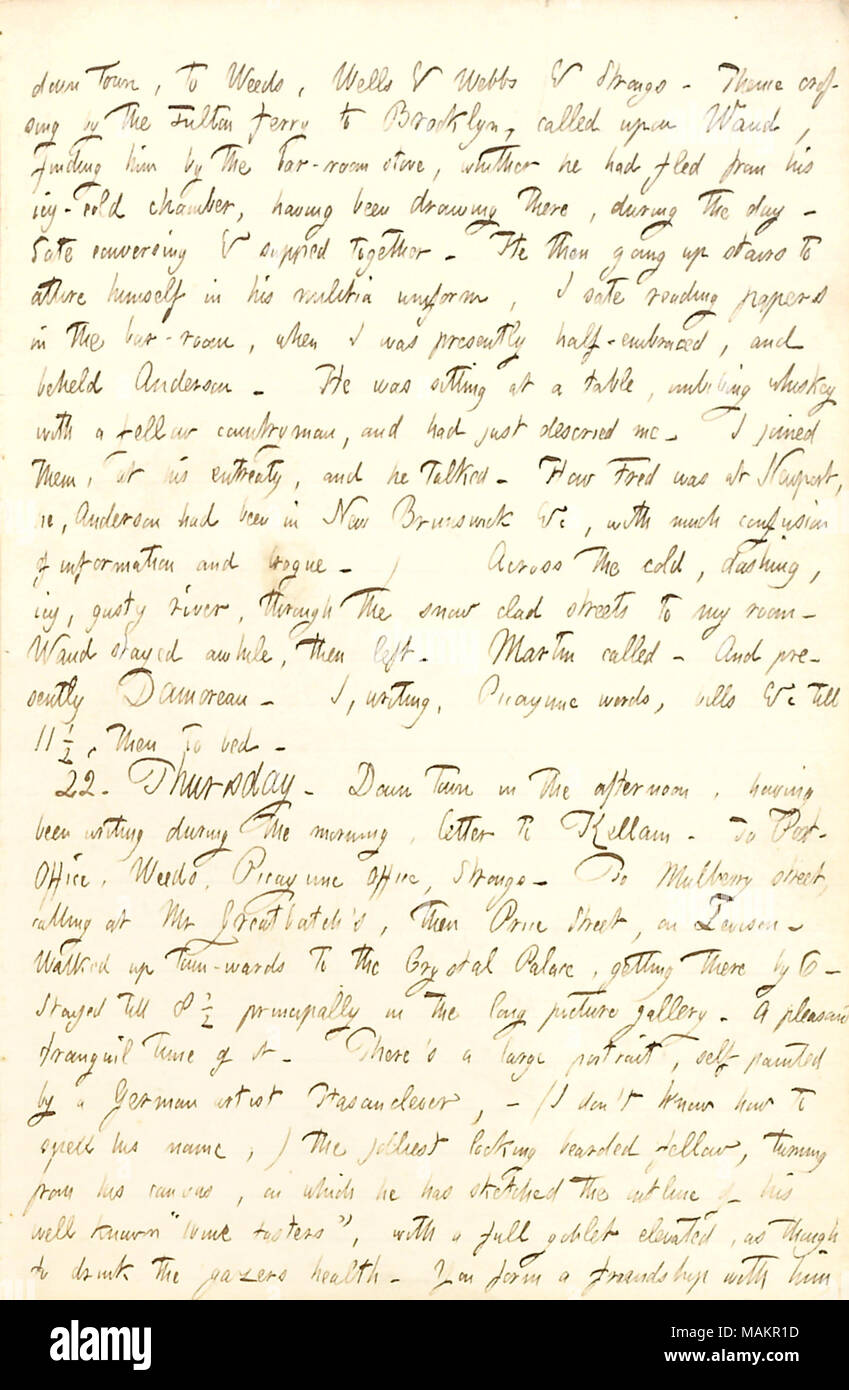 down town, to Weeds, Wells & Webbs & Strongs. Thence cros-
sing by the Fulton ferry to Brooklyn, called upon Waud,
finding him by the bar-room stove, whither he had fled from his
icy-cold chamber, having been drawing there, during the day -
Sate conversing & supped together - He then going up stairs to
attire himself in his militia uniform, I sate reading papers
in the bar-room, when I was presently half-embraced, and
beheld Anderson - He was sitting at a table, imbibing whiskey
with a fellow countryman, and had just descried me - I joined
them, at his entreaty, and he talked - How Fred was at Newport,
he, Anderson had been in New Brunswick &c, with much confusion
of information and brogue - ) Across the cold, dashing,
icy, gusty river, through the snow clad streets to my room -
Waud stayed awhile, then left - Martin called - And pre-
sently Damoreau - I, writing, Picayune words, bills &c till
11 1/2, then to bed -
22. Thursday - Down town in the afternoon, having
been writing during the morning, letter to Kellam - To Post-
Office, Weeds, Picayune Office, Strongs - To Mulberry street,
calling at Mr Greatbatch's, then Prince Street, on Levison -
Walked up town-wards to the Crystal Palace, getting there by 6 -
Stayed till 8 1/2 principally in the long picture gallery - A pleasant
tranquil time of it - There's a large portrait, self painted
by a German artist Hasanclever, - (I don't know how to
spell his name,) the jolliest looking bearded fellow, turning
from his canvas, on which he has sketched the outline of his
well known "wine tasters", with a full goblet elevated, as though
to drink the gazers health - You form a friendship with him
alamy
Image ID: MAKR1D
www.alamy.com